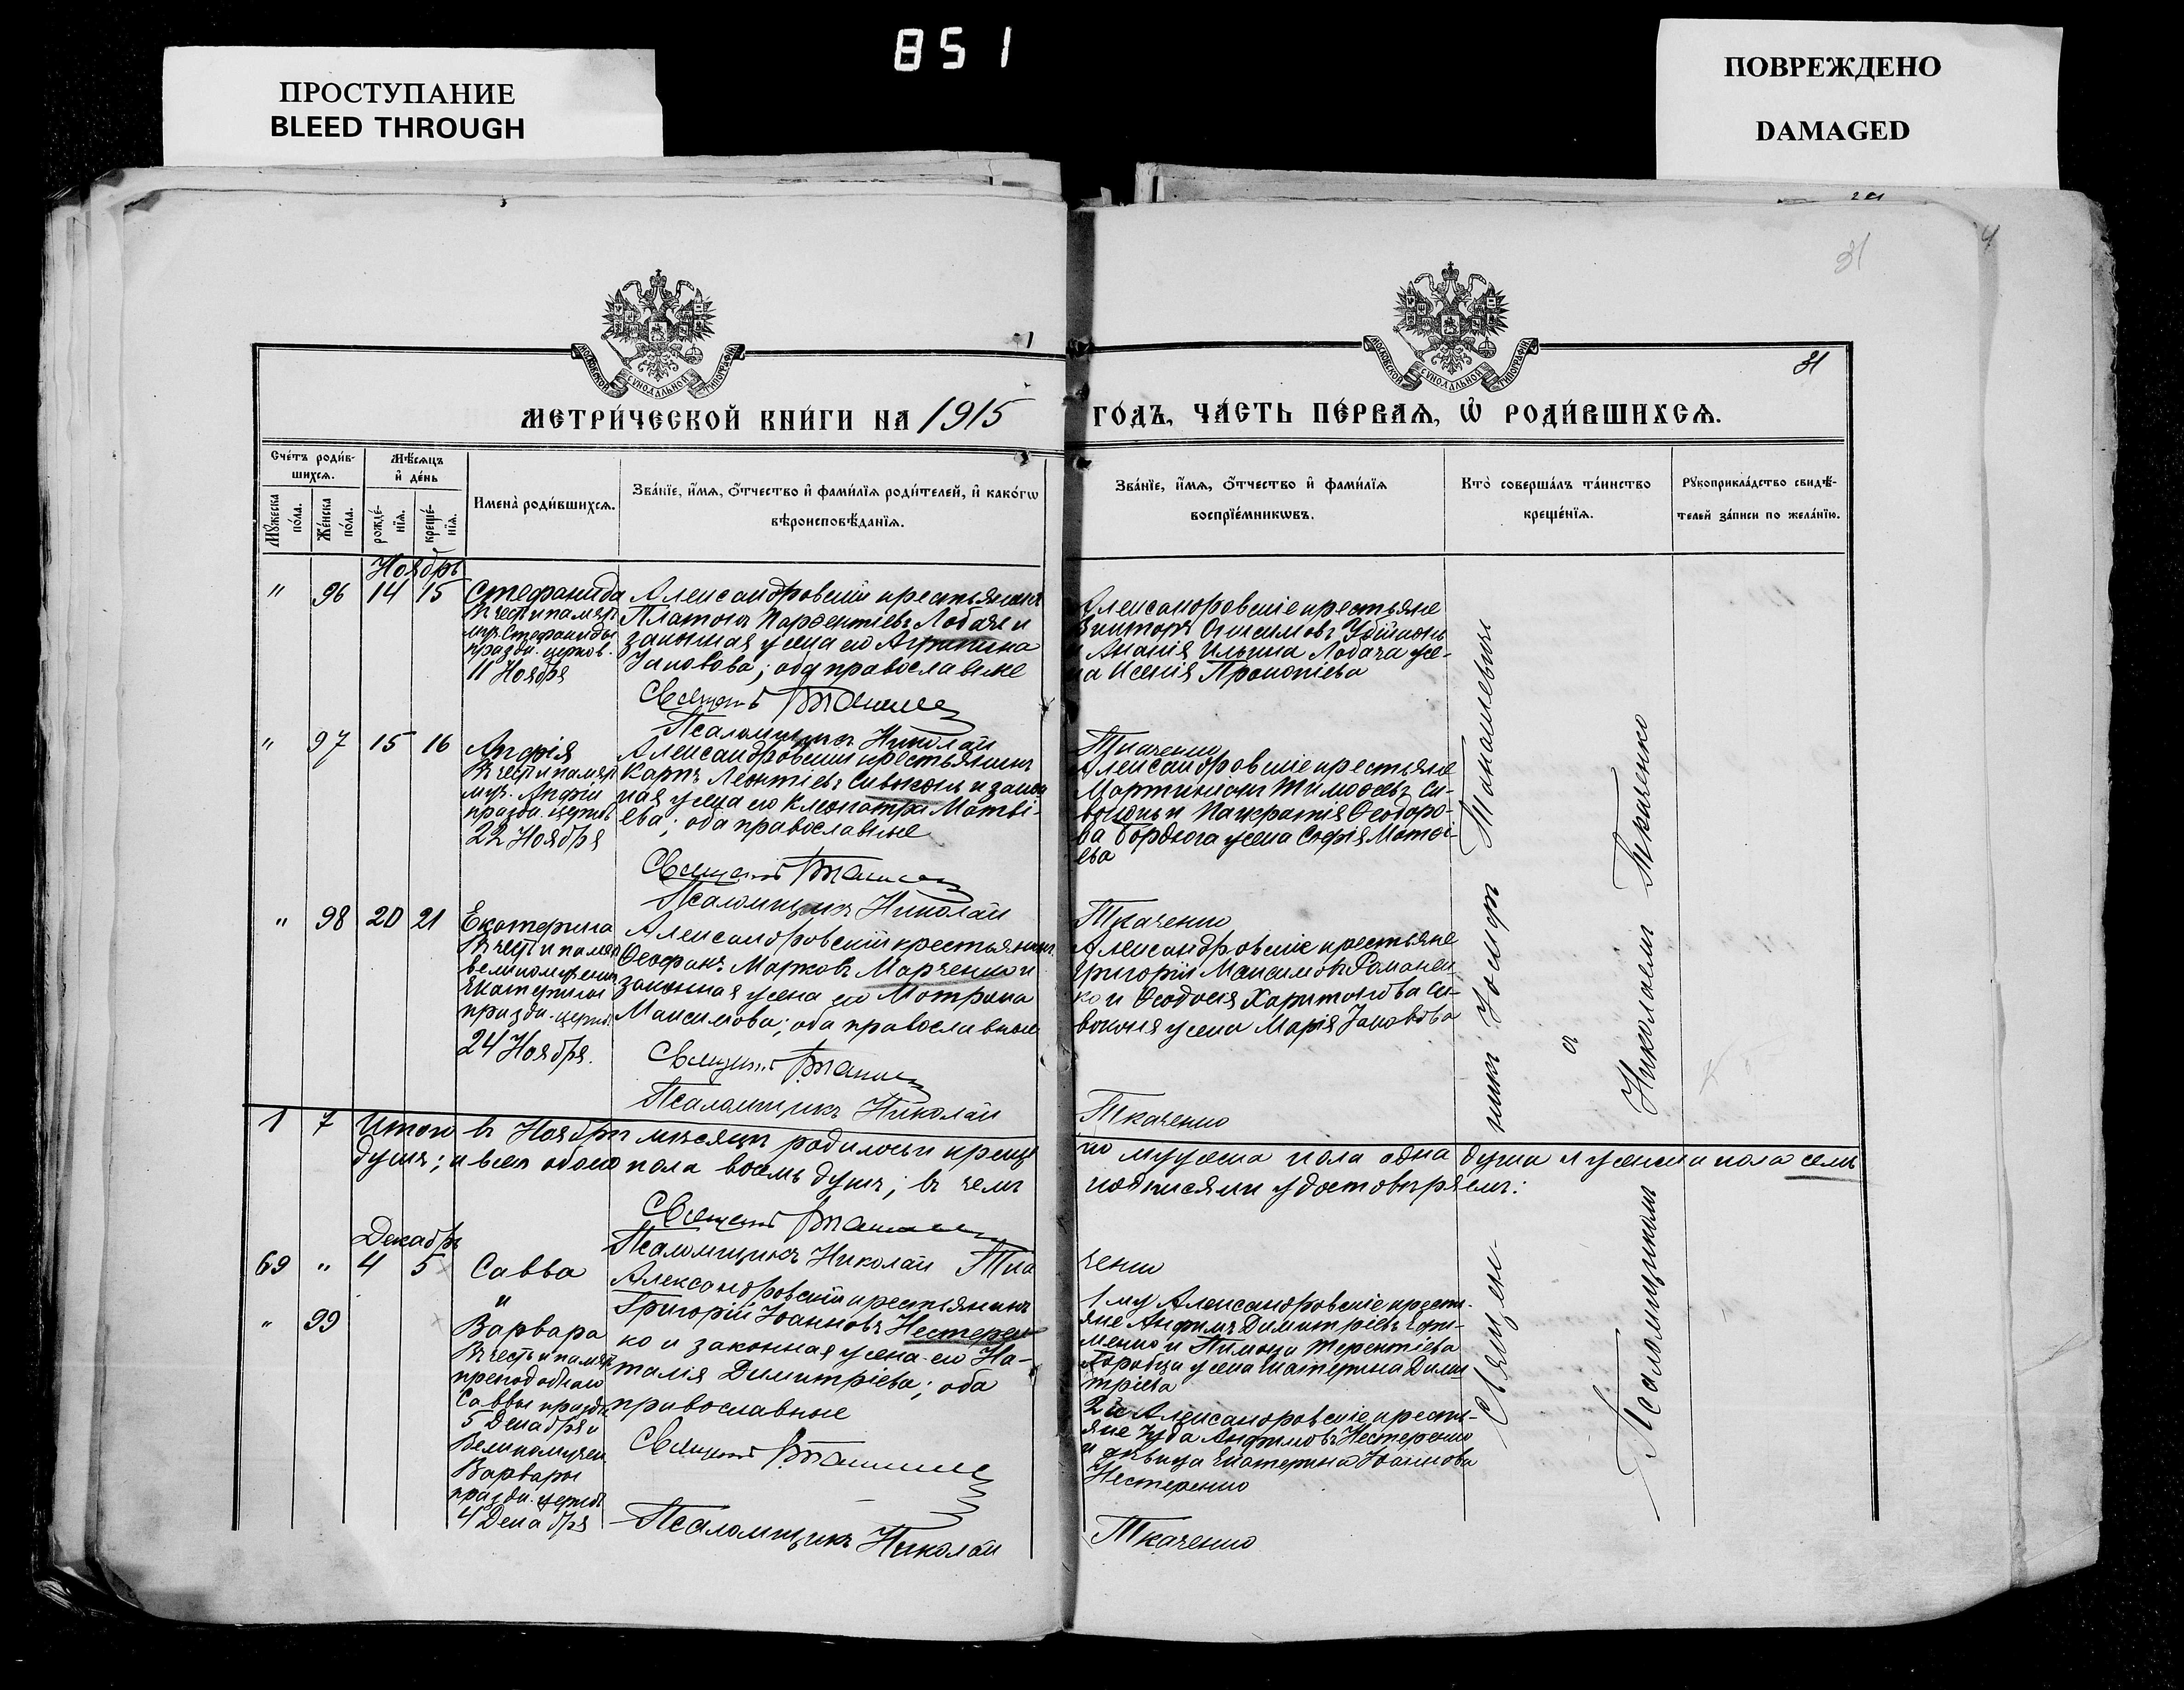 851
ПРОСТУПАНИЕ
BLEED THROUGH
ПОВРЕЖДЕНО
DAMAGED
31
МОСКОВСКОЙ СѴНОДАЛЬНОЙ ТИПОГРАФІИ
МОСКОВСКОЙ СѴНОДАЛЬНОЙ ТИПОГРАФІИ
31
МЕТРИ́ЧЕСКОЙ КНИ́ГИ НА 1915
ГО́ДЪ, ЧА́СТЬ ПЕ́РВАѦ, Ѡ҆ РОДИ́ВШИХСѦ.
Сче́тъ роди́в-
шихсѧ.
Мꙋ́жеска по́ла.
Же́нска по́ла.
Мѣ́сѧцъ
и҆ де́нь
рожде́-
нїѧ.
креще́-
нїѧ.
Имена̀ роди́вшихсѧ.
Зва́нїе, и҆́мѧ, ѻ҆́тчество и҆ фами́лїѧ роди́телей, и҆ како́гѡ
вѣроисповѣ́данїѧ.
Зва́нїе, и҆́мѧ, ѻ҆́тчество и҆ фами́лїѧ
воспрїе́мникѡвъ.
Кто̀ соверша́лъ та́инство
креще́нїѧ.
Рꙋкоприкла́дство свидѣ́-
телей за́писи по жела́нїю.
Ноябрь
" 96 14 15
Стефанида
Въ честь и памят
муч. Стефаниды
празд. церков.
11 Ноября
Александровскій крестьянинъ
Платонъ Парфентіевъ Лобачъ и
законная жена его Агрипина
Іаковова; оба православные
Священ
Псаломщикъ Николай
Александровскіе крестьяне
Викторъ
и Ананія Ильина Лобача же-
на Ксенія Прокопіева
Ткаченко
" 97 15 16
Апфія
Въ честь и памят
муч. Апфіи
празд. церков
22 Ноября
Александровскій крестьянинъ
Карпъ Леонтіевъ Сивоконь и закон
ная жена его Клеопатра Матѳі-
ева; оба православные
Священ
Псаломщикъ Николай
Александровскіе крестьяне
Мартиніанъ Тимоѳеевъ Си-
воконь и Панкратія Ѳеодоро-
ва Бордюга жена Софія Матѳі-
ева
Ткаченко
" 98 20 21
Екатерина
Въ честь и памят
великомучен
Екатерины
празд. церков.
24 Ноября.
Александровскій крестьянинъ
Ѳеофанъ Марковъ Марченко и
законная жена его Матрона
Максимова; оба православные
Священ
Псаломщикъ Николай
Александровскіе крестьяне
Григорій Максимовъ Романен
ко и Ѳеодосія Харитонова Си-
воконя жена Марія Іаковова
Ткаченко
1 7 Итого въ Ноябрѣ мѣсяцѣ родилось и креще
но мужеска пола одна душа и женска пола семь
душъ; а всего обоего пола восемь душъ; въ чемъ
подписями удостовѣряемъ:
Священ
Псаломщикъ Николай Тка
ченко
Декабрь
69 " 4 5
Савва
и
" 99
Варвара
Въ честь и память
преподобнаго
Саввы празд
5 Декабря и
Великомучен
Варвары
празд. церков
4 Декабря
Александровскій крестьянинъ
Григорій Іоанновъ Нестерен
ко и законная жена его На-
талія Димитріева; оба
православные
Священ
Псаломщикъ Николай
1 му Александровскіе кресть-
яне Анфимъ Димитріевъ Ефи-
менко и Пимона Терентіева
жена Екатерина Дими
тріева
2 й Александровскіе кресть-
яне Іуда Анфимовъ Нестеренко
и дѣвица Екатерина Іоаннова
Нестеренко
Ткаченко
Священ-
никъ Іосифъ Танашевичъ
съ
Псаломщикомъ
Николаемъ Ткаченко